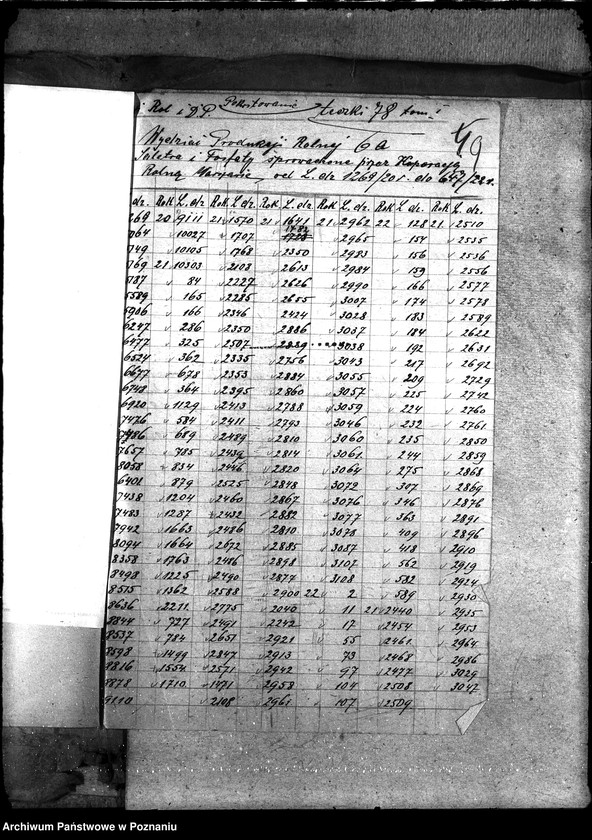 Rol. i D.P. Pokwitowanie teczki 78 tom I
49
Wydział Produkcji Rolnej 6a
Saletra i Fosfaty sprowadzone przez Koporację
Rolną Warszawie, od L. dz. 1269/20 r. do 647/22 r.
dz. Rok L. dz. Rok L. dz. Rok L. dz. Rok L. dz. Rok L. dz. Rok L. dz.
269 20 9111 21 1570 21 1641 21 2962 22 128 21 2510
764 10027 1707 2965 154 2535
749 10105 1768 2350 2983 156 2536
769 21 10303 2108 2613 2984 159 2556
787 84 2227 2626 2990 166 2577
5589 165 2285 2655 3007 174 2578
5906 166 2346 2424 3028 183 2589
6247 286 2350 2886 3037 184 2622
6477 325 2507 2889 3038 192 2631
6524 362 2335 2756 3043 217 2692
6677 678 2353 2884 3055 209 2729
6748 364 2395 2860 3057 225 2742
6920 1129 2413 2788 3059 224 2760
7476 584 2411 2793 3046 232 2761
7486 689 2489 2810 3060 235 2850
7657 785 2439 2814 3061 244 2859
8058 834 2446 2820 3064 275 2868
6401 879 2525 2848 3072 307 2869
7438 1204 2460 2867 3076 346 2876
7483 1287 2432 2882 3077 363 2891
7942 1663 2486 2810 3078 409 2896
8094 1664 2672 2885 3087 418 2910
8358 1763 2486 2898 3107 562 2919
8498 1225 2490 2877 3108 582 2924
8575 1362 2588 2900 22 2 589 2930
8636 2271 2775 2040 11 21 2440 2935
8844 727 2491 2242 17 2454 2953
8537 784 2651 2921 55 2461 2964
8598 1499 2847 2913 73 2468 2986
8816 1554 2571 2942 97 2477 3029
8878 1710 1471 2958 104 2508 3047
9110 2108 2961 107 2509
Archiwum Państwowe w Poznaniu